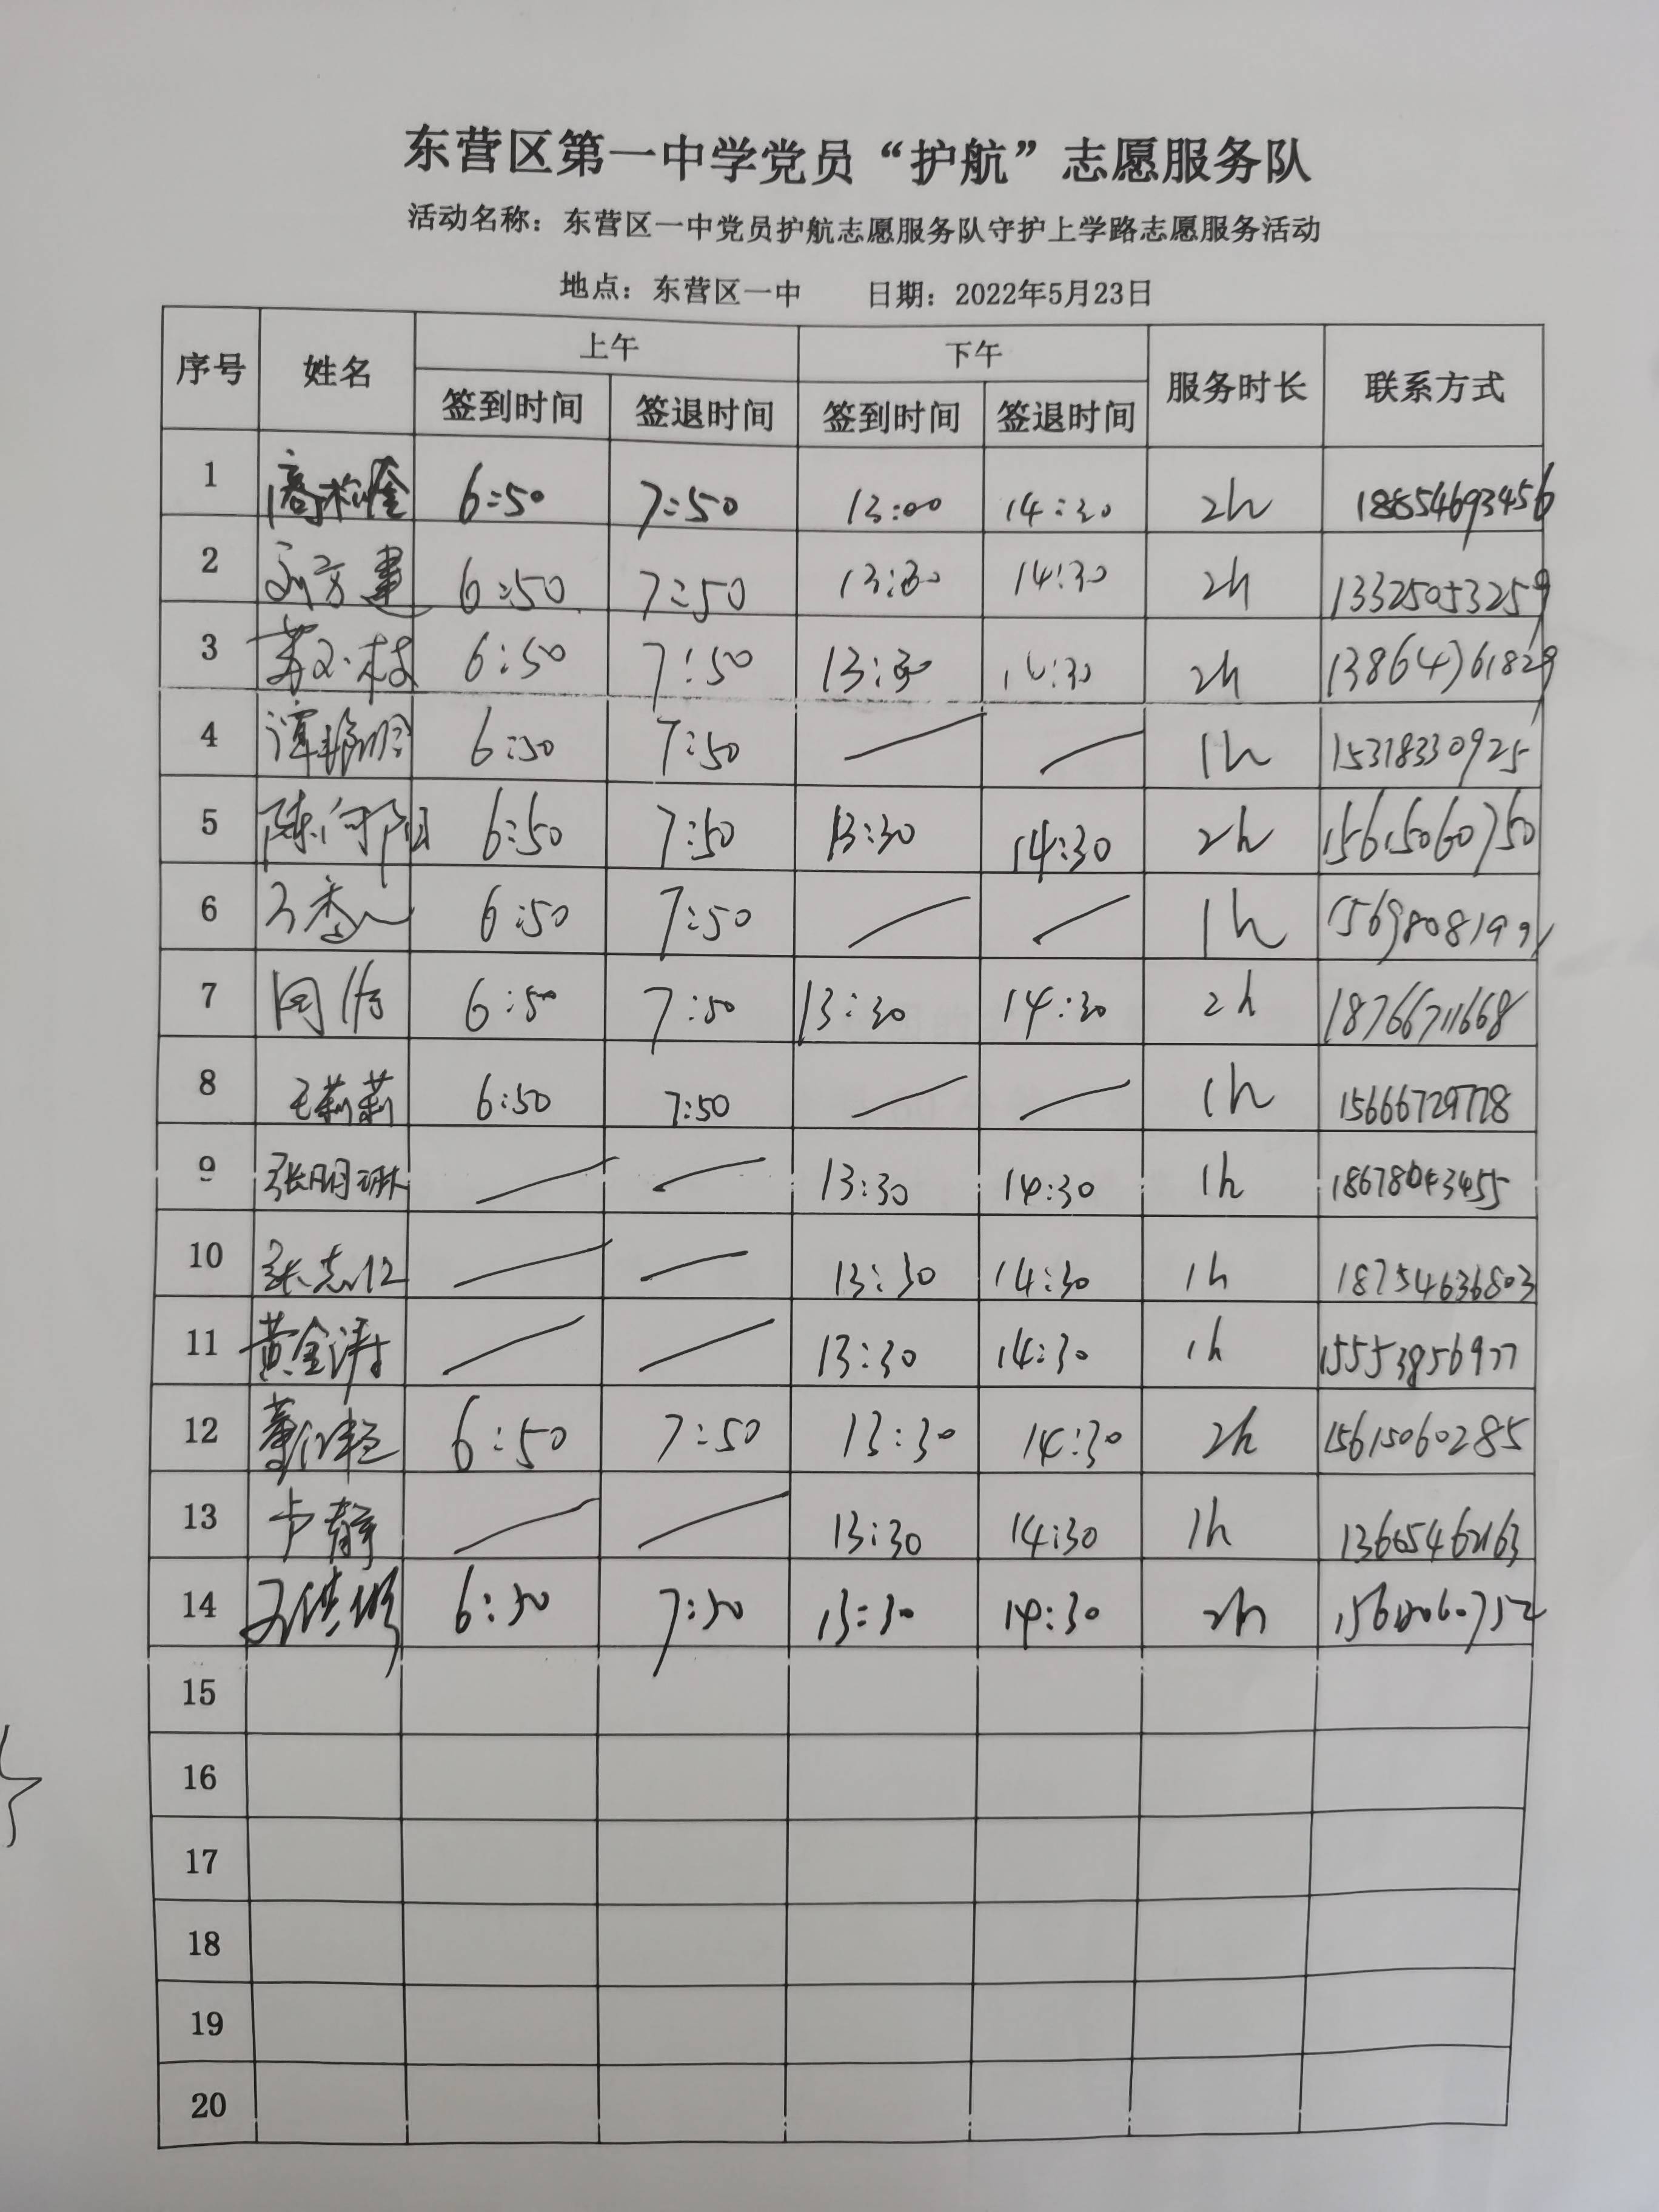 东营区第一中学党员“护航”志愿服务队
活动名称：东营区一中党员护航志愿服务队守护上学路志愿服务活动
地点：东营区一中 日期：2022年5月23日
序号 姓名 上午 下午 服务时长 联系方式
签到时间 签退时间 签到时间 签退时间
1 6:50 7:50 13:00 14:30 2h 18854693456
2 6:50 7:50 13:30 14:30 2h 13325053259
3 6:50 7:50 13:30 14:30 2h 13864761829
4 6:50 7:50 1h 15318330925
5 陈向阳 6:50 7:50 13:30 14:30 2h 15615060750
6 6:50 7:50 1h
7 周倩 6:50 7:50 13:30 14:30 2h 18766711668
8 王莉莉 6:50 7:50 1h 15666729778
9 张明琳 13:30 14:30 1h 18678043455
10 13:30 14:30 1h 18754636803
11 黄金涛 13:30 14:30 1h 15553856977
12 6:50 7:50 13:30 14:30 2h 15615060285
13 卢静 13:30 14:30 1h 13605462163
14 6:50 7:50 13:30 14:30 2h
15
16
17
18
19
20